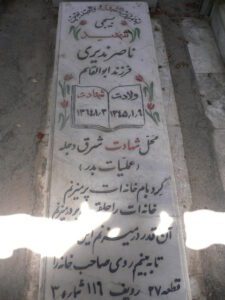 بسیجی
شهید
ناصر نذیری
فرزند ابوالقاسم
ولادت شهادت
۱۳۴۵،۱،۹ ۱۳۶۴،۸،۳
محل شهادت شرق دجله
(عملیات بدر)
گرد بام خانه ات پر میزنم
خانه ات را حلقه بر در میزنم
آن قدر در میزنم این
تا ببینم روی صاحب خانه را
قطعه ۲۷ ردیف ۱۱۶ شماره ۳